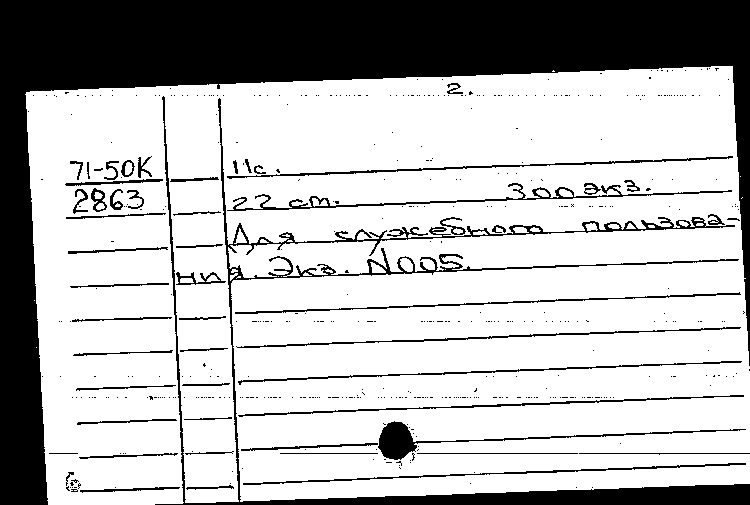 2.
71-50К 11с.
2863 22 см. 300 экз.
Для служебного пользова-
ния. Экз. N005.